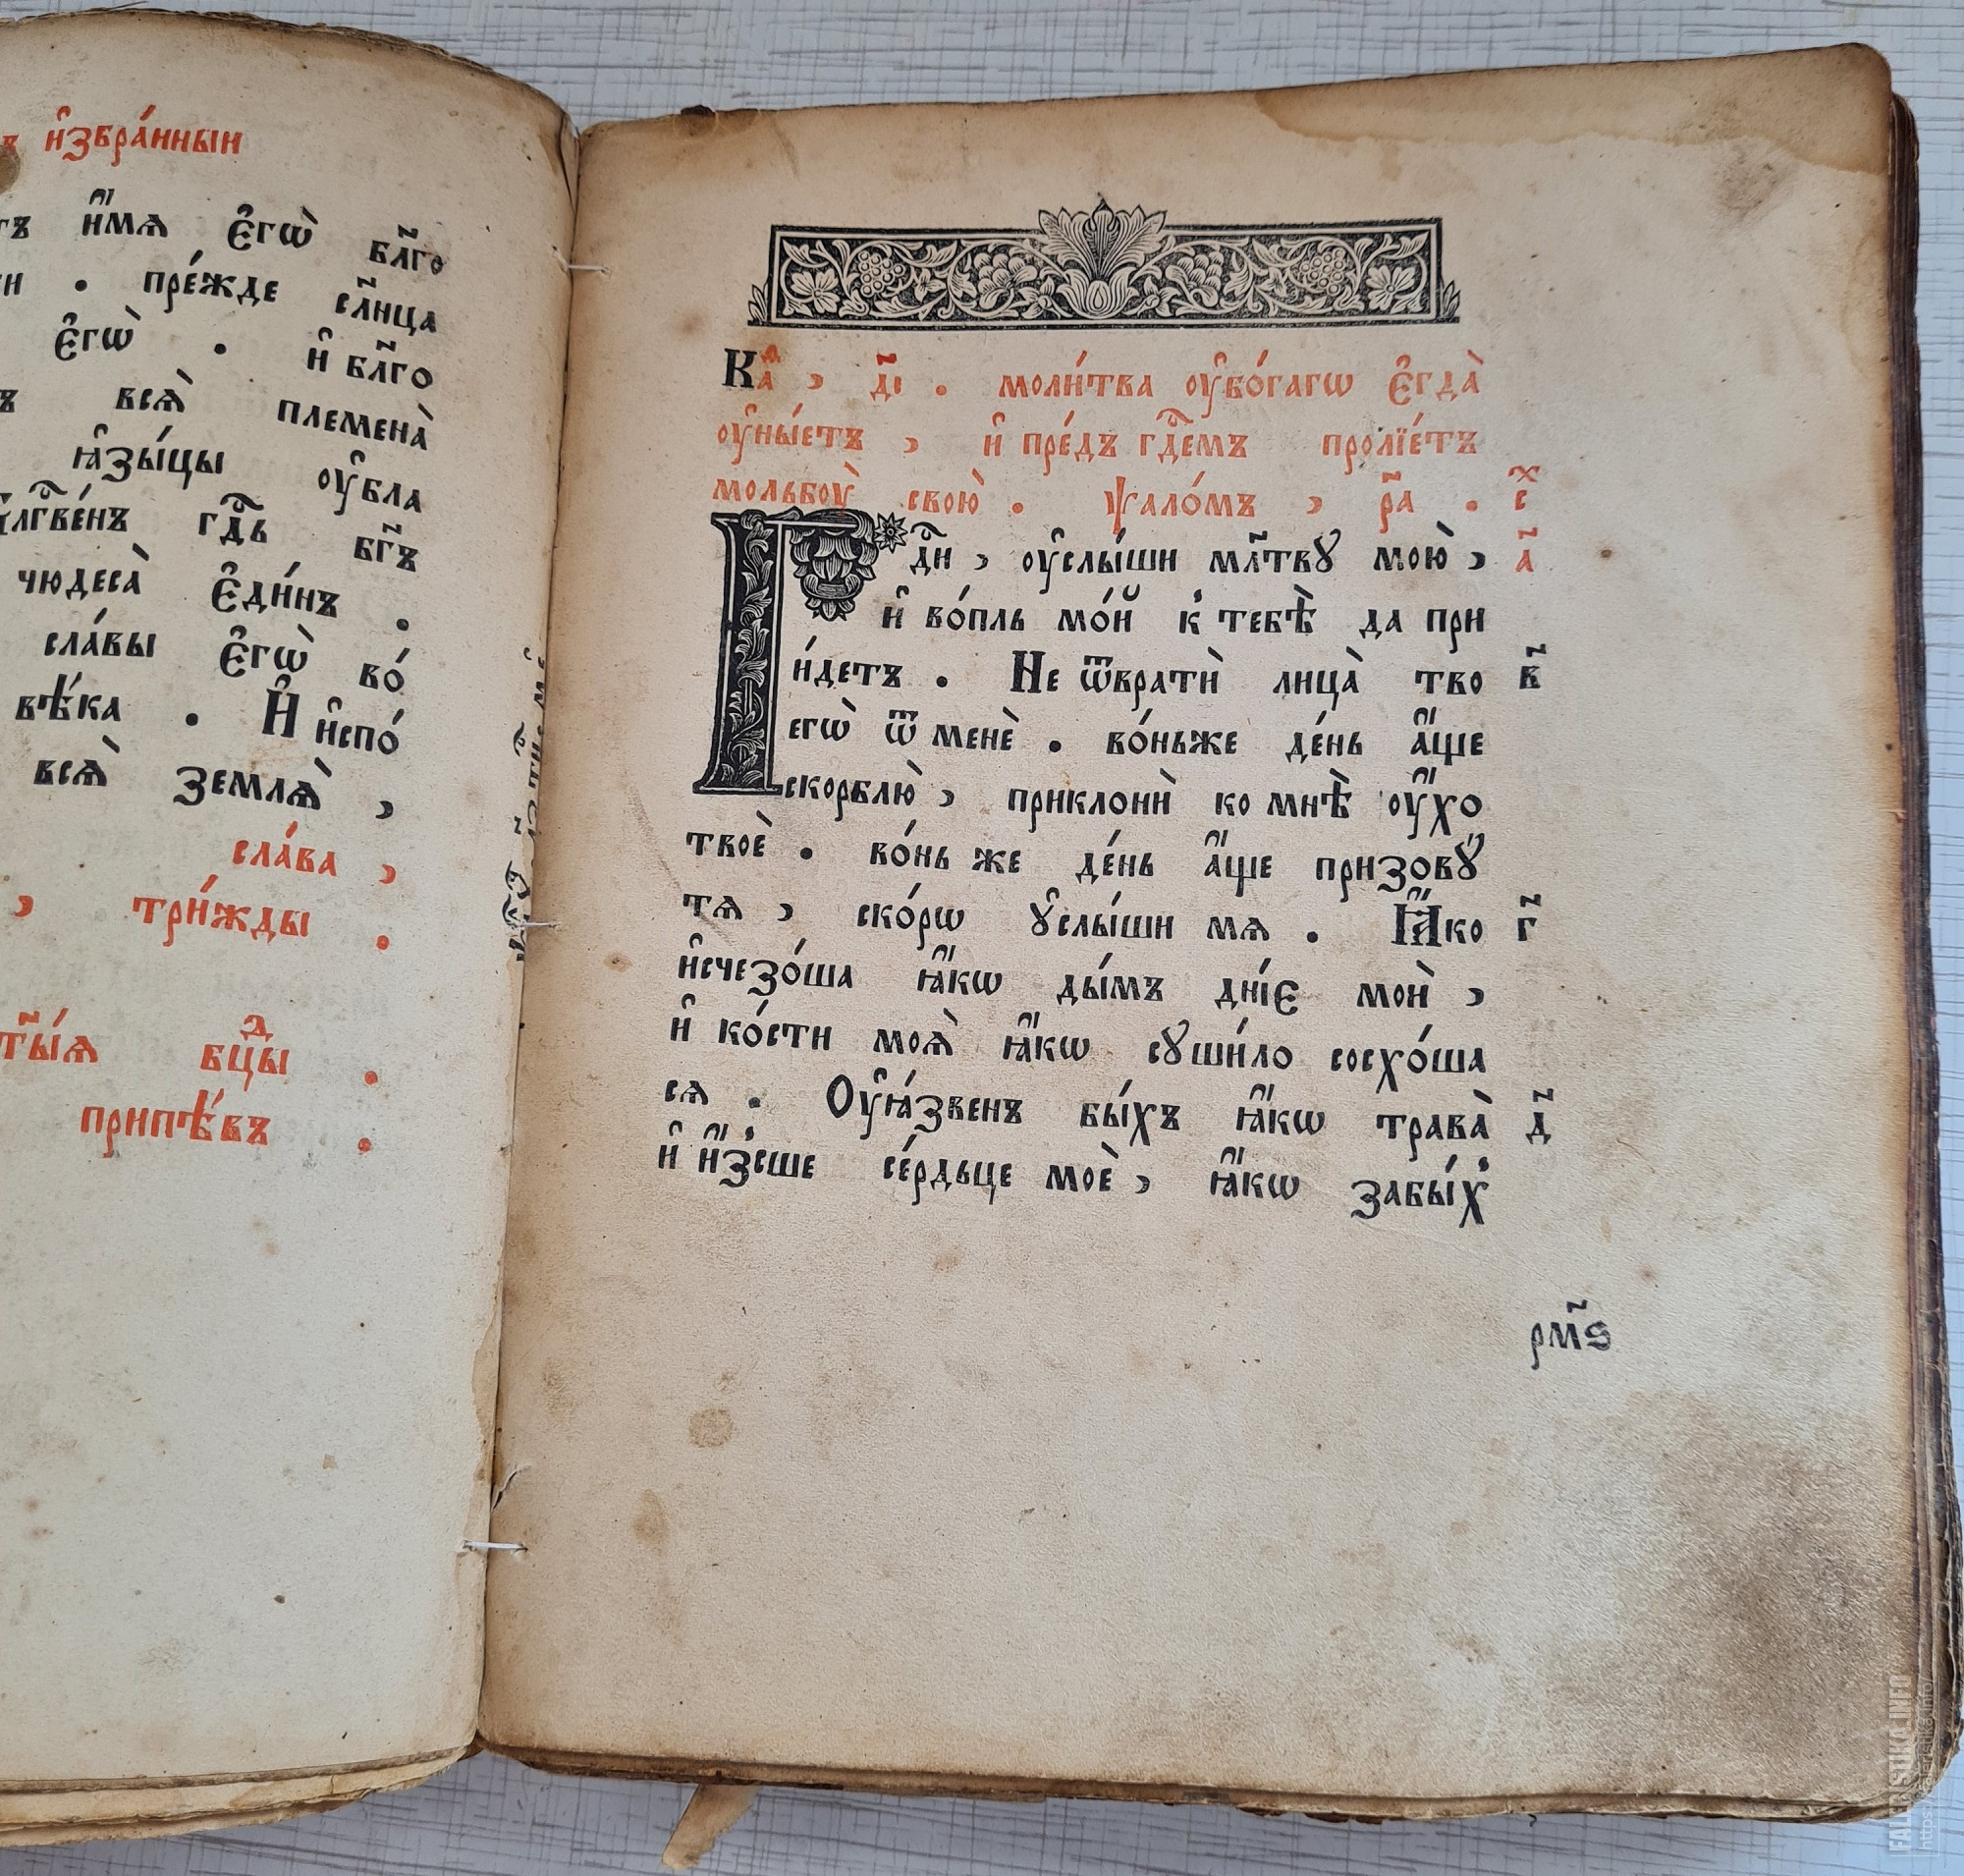 и҆збра́нныи
и҆́мѧ є҆гѡ̀ бл҃го
пре́жде сл҃нца
є҆гѡ̀ . и҆ бл҃го
всѧ̀ племена̀
ꙗ҆зы́цы оу҆бла
гдⷭ҇ь бг҃ъ
чюдеса̀ є҆ди́нъ .
сла́вы є҆гѡ̀ во́
вѣ́ка . И҆ и҆спо́
всѧ̀ землѧ̀ ,
сла́ва ,
, три́жды .
бцⷣы .
припѣ́въ .
Каⷴ҇ , д҃і . моли́тва оу҆бо́гагѡ є҆гда̀
оу҆ны́етъ , и҆ пре́дъ гдⷭ҇емъ пролїе́тъ
мольбоу̀ свою̀ . ѱало́мъ , р҃а . сⷯ
Гдⷭ҇и , оу҆слы́ши мл҃твꙋ мою̀ , а҃
и҆ во́пль мо́й к тебѣ̀ да прі
и́детъ . Не ѿвратѝ лица̀ тво в҃
егѡ̀ ѿ менє̀ . во́ньже де́нь а҆́ще
скорблю̀ , приклонѝ ко мнѣ̀ оу҆́хо
твоѐ . во́нь же де́нь а҆́ще призовꙋ̀
тѧ , ско́рѡ ꙋ҆слы́ши мѧ . Ꙗ҆́ко г҃
и҆счезо́ша ꙗ҆́кѡ ды́мъ дні́є моѝ ,
и҆ ко́сти моѧ̀ ꙗ҆́кѡ сꙋши́ло сосхо́ша
сѧ . Оу҆ꙗ́звенъ бы́хъ ꙗ҆́кѡ трава̀ д҃
и҆ и҆́зсше се́рдьце моѐ , ꙗ҆́кѡ забы́х
рм҃ѕ
FALERISTIKA.INFO